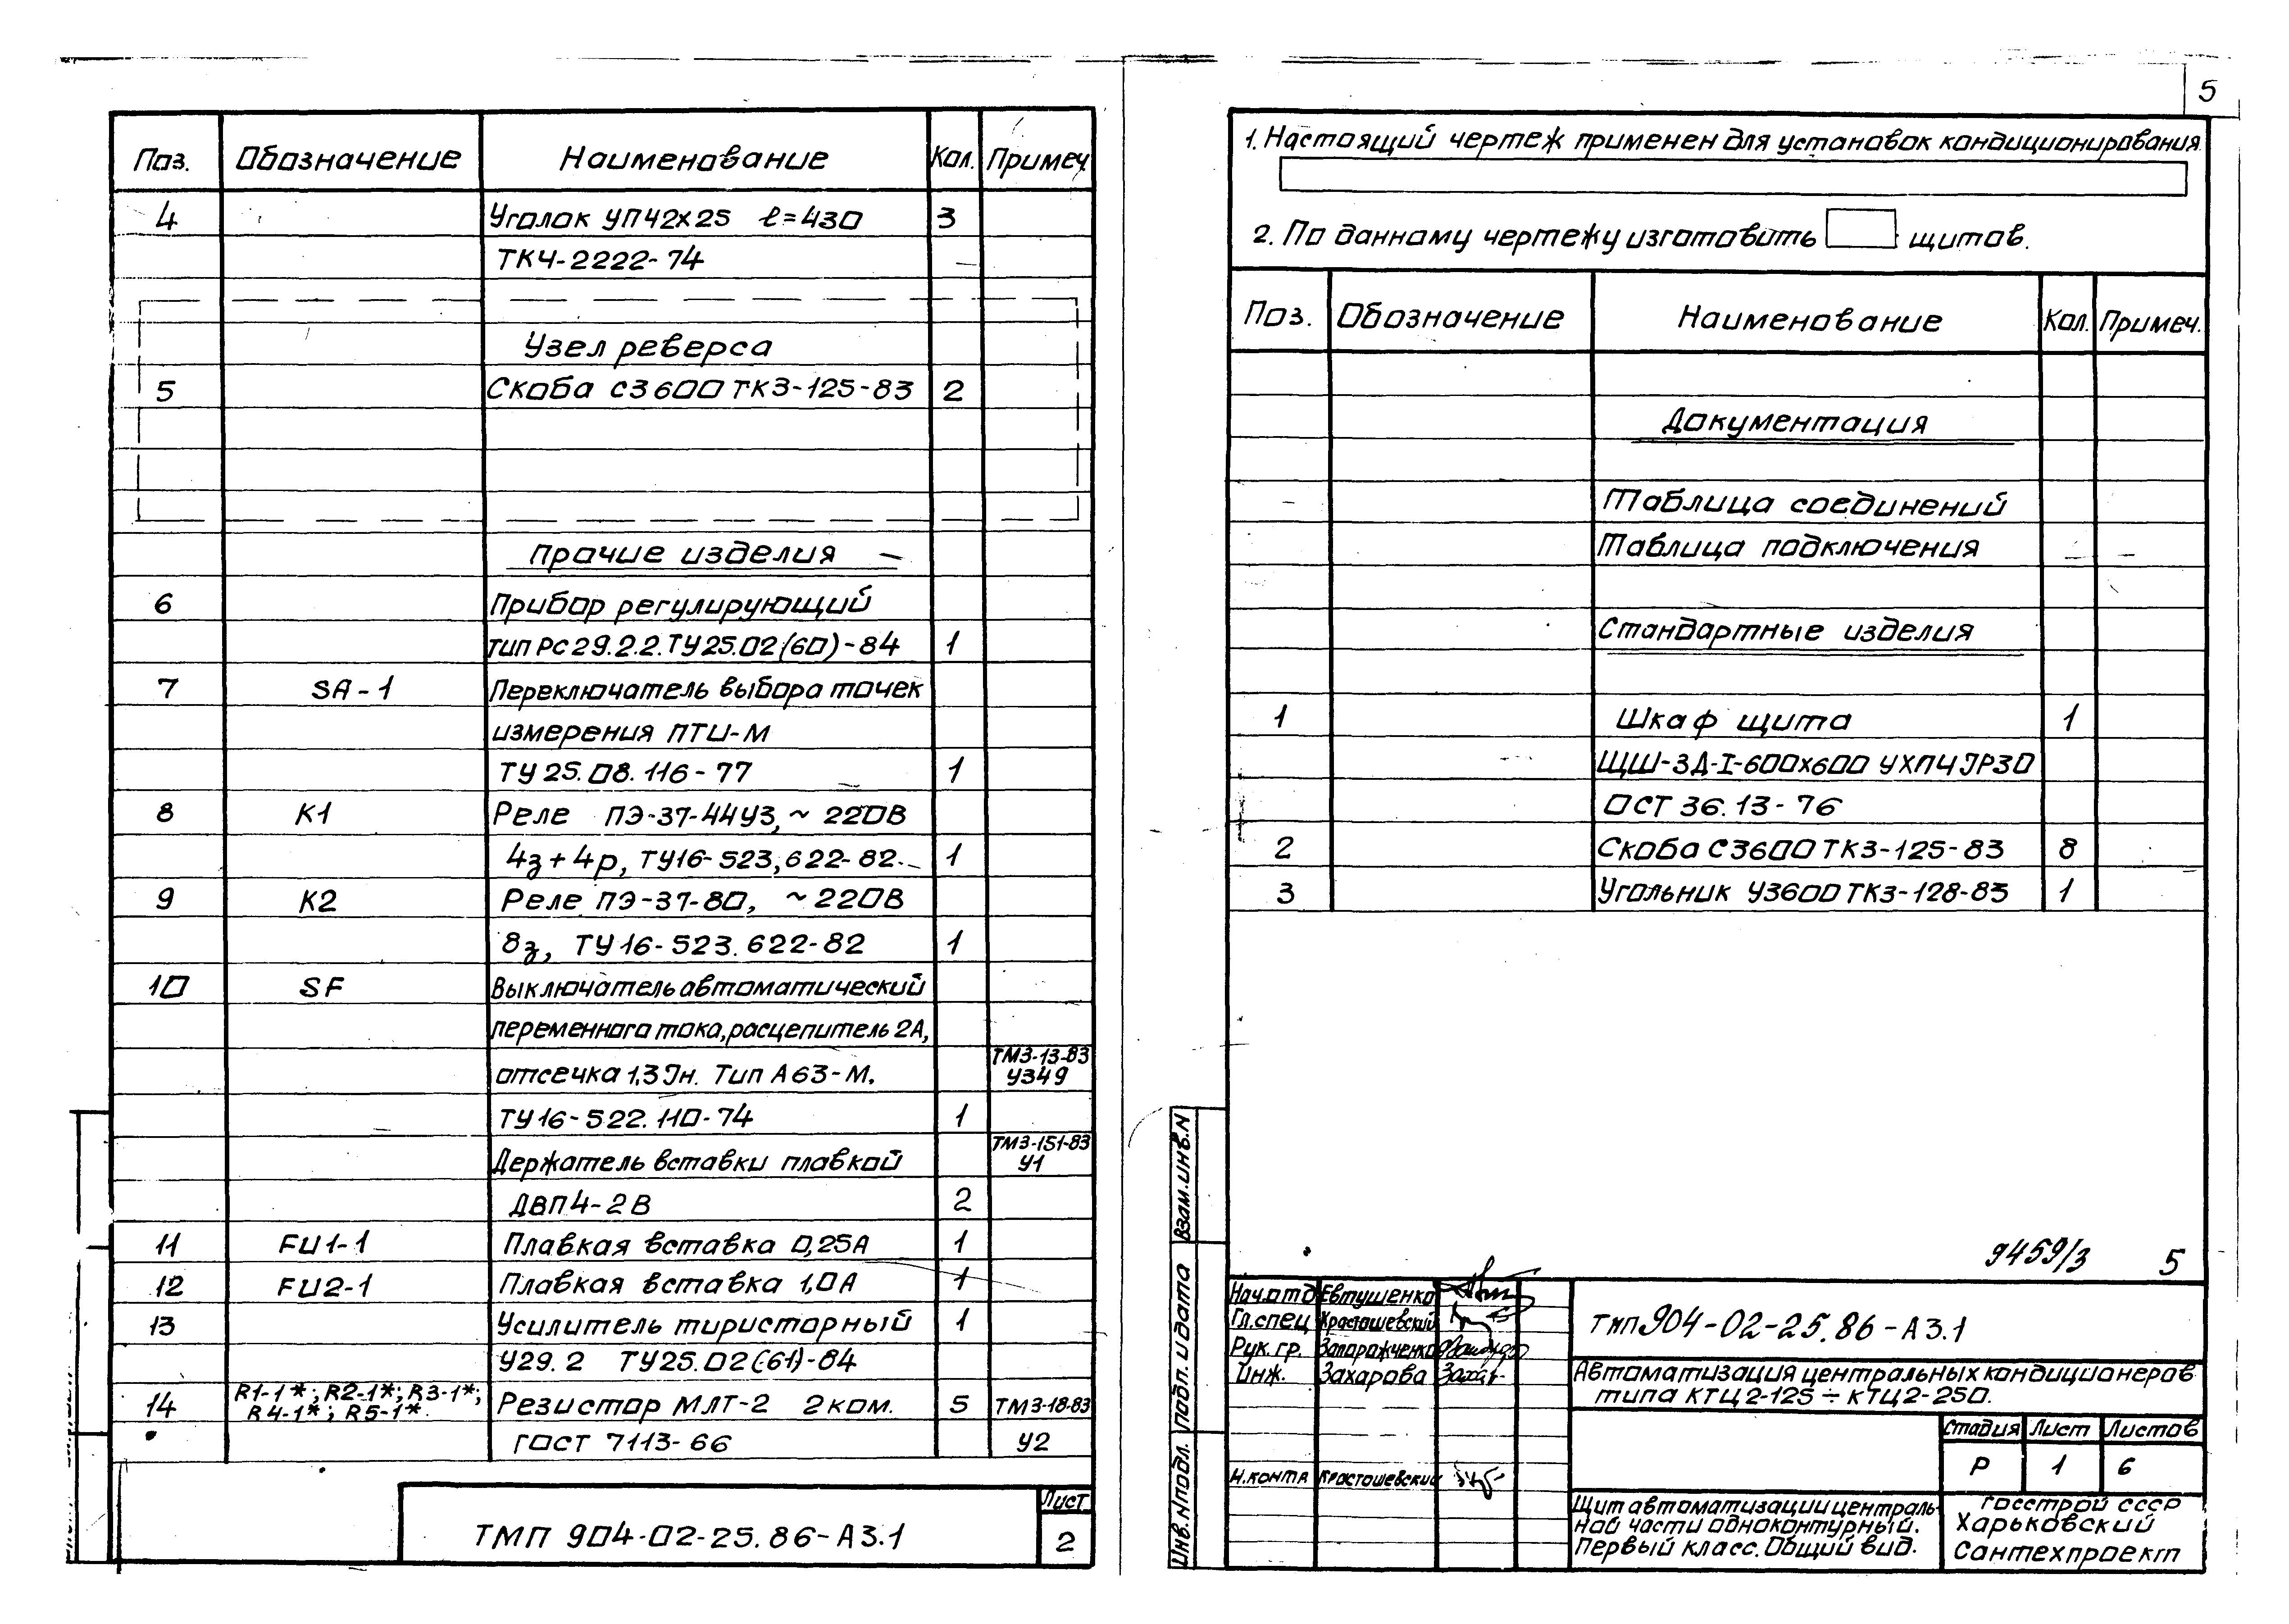 Поз. Обозначение Наименование Кол. Примеч.
4 Уголок УП42х25 ℓ=430 3
ТК4-2222-74
Узел реверса
5 Скоба С3600 ТК3-125-83 2
Прочие изделия
6 Прибор регулирующий
тип РС29.2.2. ТУ25.02(60)-84 1
7 SA-1 Переключатель выбора точек
измерения ПТИ-М
ТУ 25.08.116-77 1
8 К1 Реле ПЭ-37-44У3, ~ 220В
4з+4р, ТУ16-523,622-82. 1
9 К2 Реле ПЭ-37-80, ~220В
8з, ТУ16-523.622-82 1
10 SF Выключатель автоматический
переменного тока, расцепитель 2А,
отсечка 1,3Iн. Тип А63-М. ТМ3-13-83 У349
ТУ16-522.110-74 1
Держатель вставки плавкой ТМ3-151-83 У1
ДВП4-2В 2
11 FU1-1 Плавкая вставка 0,25А 1
12 FU2-1 Плавкая вставка 1,0А 1
13 Усилитель тиристорный 1
У29.2 ТУ25.02(61)-84
14 R1-1*; R2-1*; R3-1*; R4-1*; R5-1*. Резистор МЛТ-2 2ком. 5 ТМ3-18-83
ГОСТ 7113-66 У2
ТМП 904-02-25.86-А3.1
Лист
2
5
1. Настоящий чертеж применен для установок кондиционирования
2. По данному чертежу изготовить щитов.
Поз. Обозначение Наименование Кол. Примеч.
Документация
Таблица соединений
Таблица подключения
Стандартные изделия
1 Шкаф щита 1
ЩШ-3Д-I-600х600 УХЛ4 IР30
ОСТ 36.13-76
2 Скоба С3600 ТК3-125-83 8
3 Угольник У3600 ТК3-128-83 1
9459/3 5
Взам.инв.N
Подп. и дата
Инв.N подл.
Нач.отд Евтушенко
Гл.спец Красташевский
Рук.гр. Запаражченко
Инж. Захарова
Н.контр Красташевский
ТМП904-02-25.86-А3.1
Автоматизация центральных кондиционеров
типа КТЦ2-125÷КТЦ2-250.
Стадия Лист Листов
Р 1 6
Щит автоматизации централь-
ной части одноконтурный.
Первый класс. Общий вид.
Госстрой СССР
Харьковский
Сантехпроект